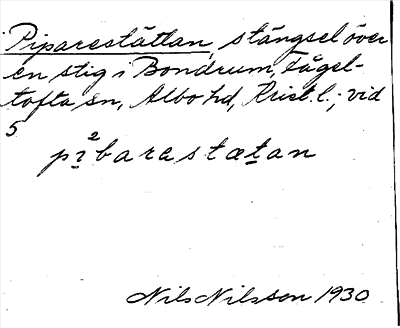 Piparestättan, stängsel över
en stig i Bondrum, Fågel-
tofta sn, Albo hd, Krist. l.; vid
5
pi²barestætan
Nils Nilsson 1930